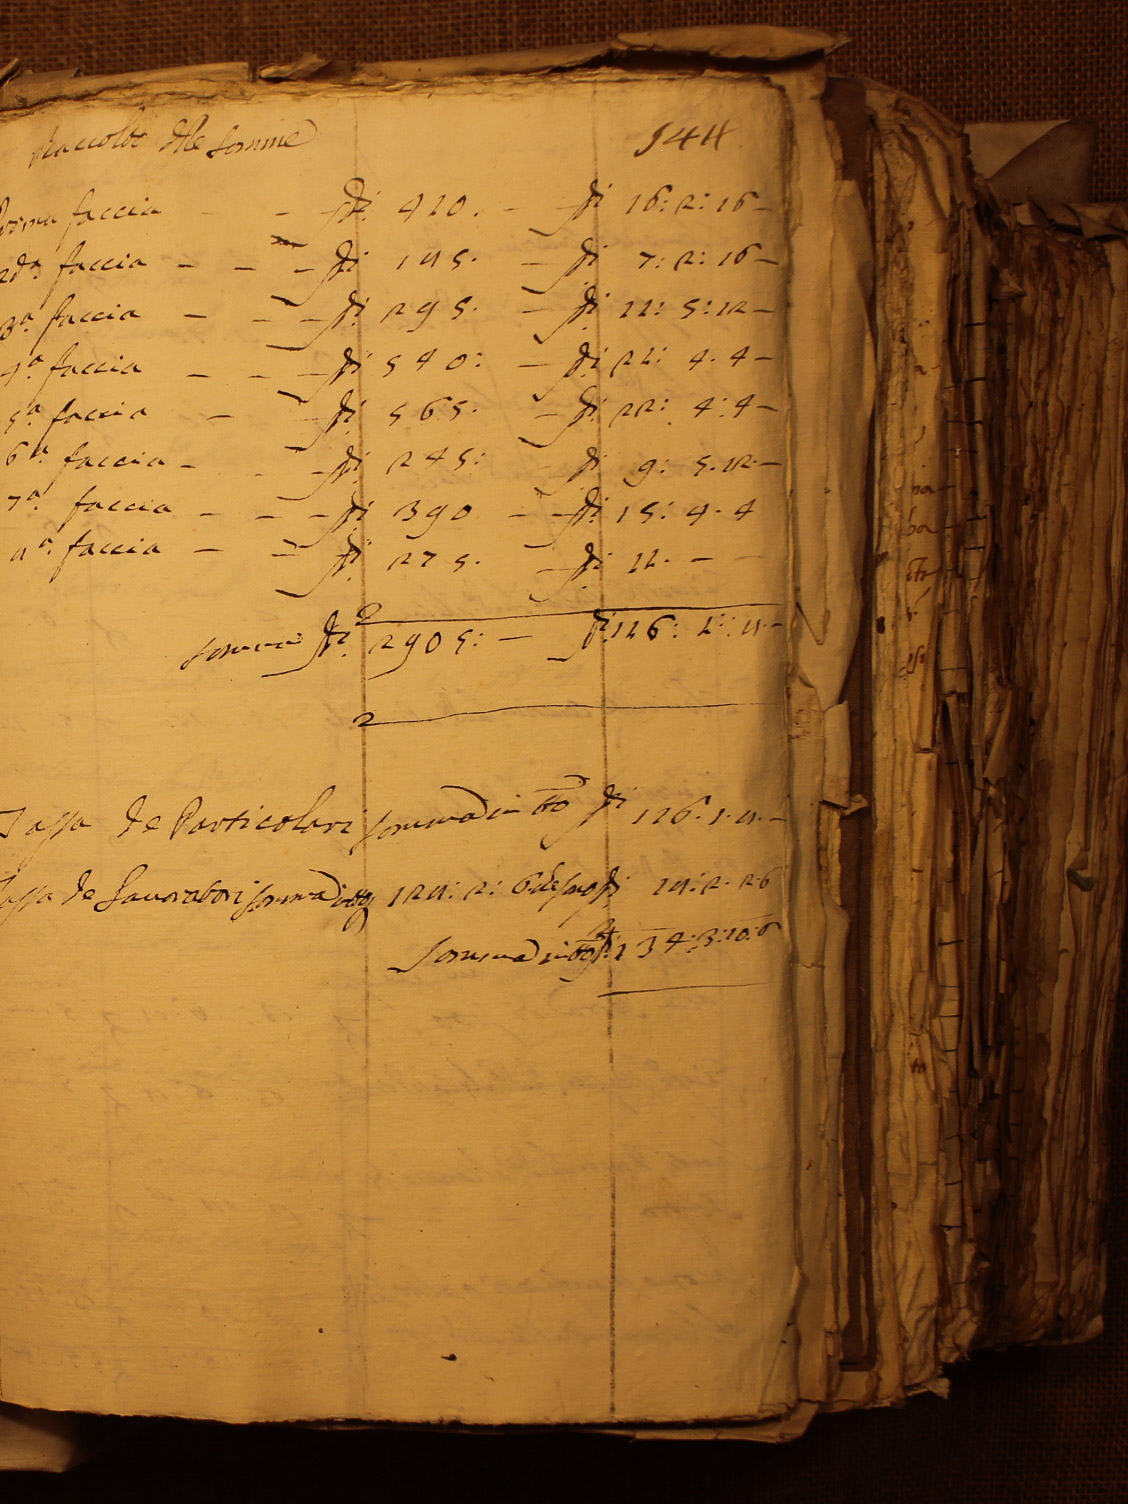 Raccolto delle somme
Prima faccia - - fi 410. - fi 16:2:16-
2da faccia - - - fi 185. - fi 7:2:16-
3a faccia - - - fi 295. - fi 11:5:12-
4a faccia - - - fi 540: - fi 21:4.4-
5a faccia - - fi 565. - fi 22:4:4-
6a faccia - - - fi 245: - fi 9:5.12.-
7a faccia - - - fi 390 - - fi 15:4.4
8a faccia - - fi 275. - fi 11. - -
somma fi 2905: - fi 116:1:8.-
Tassa de Particolari somma in tto fi 116.1.8.-
Tassa de Lavoratori somma 128:2:6 fi 18:2.2.6
Somma in tto fi 134:3:10:6